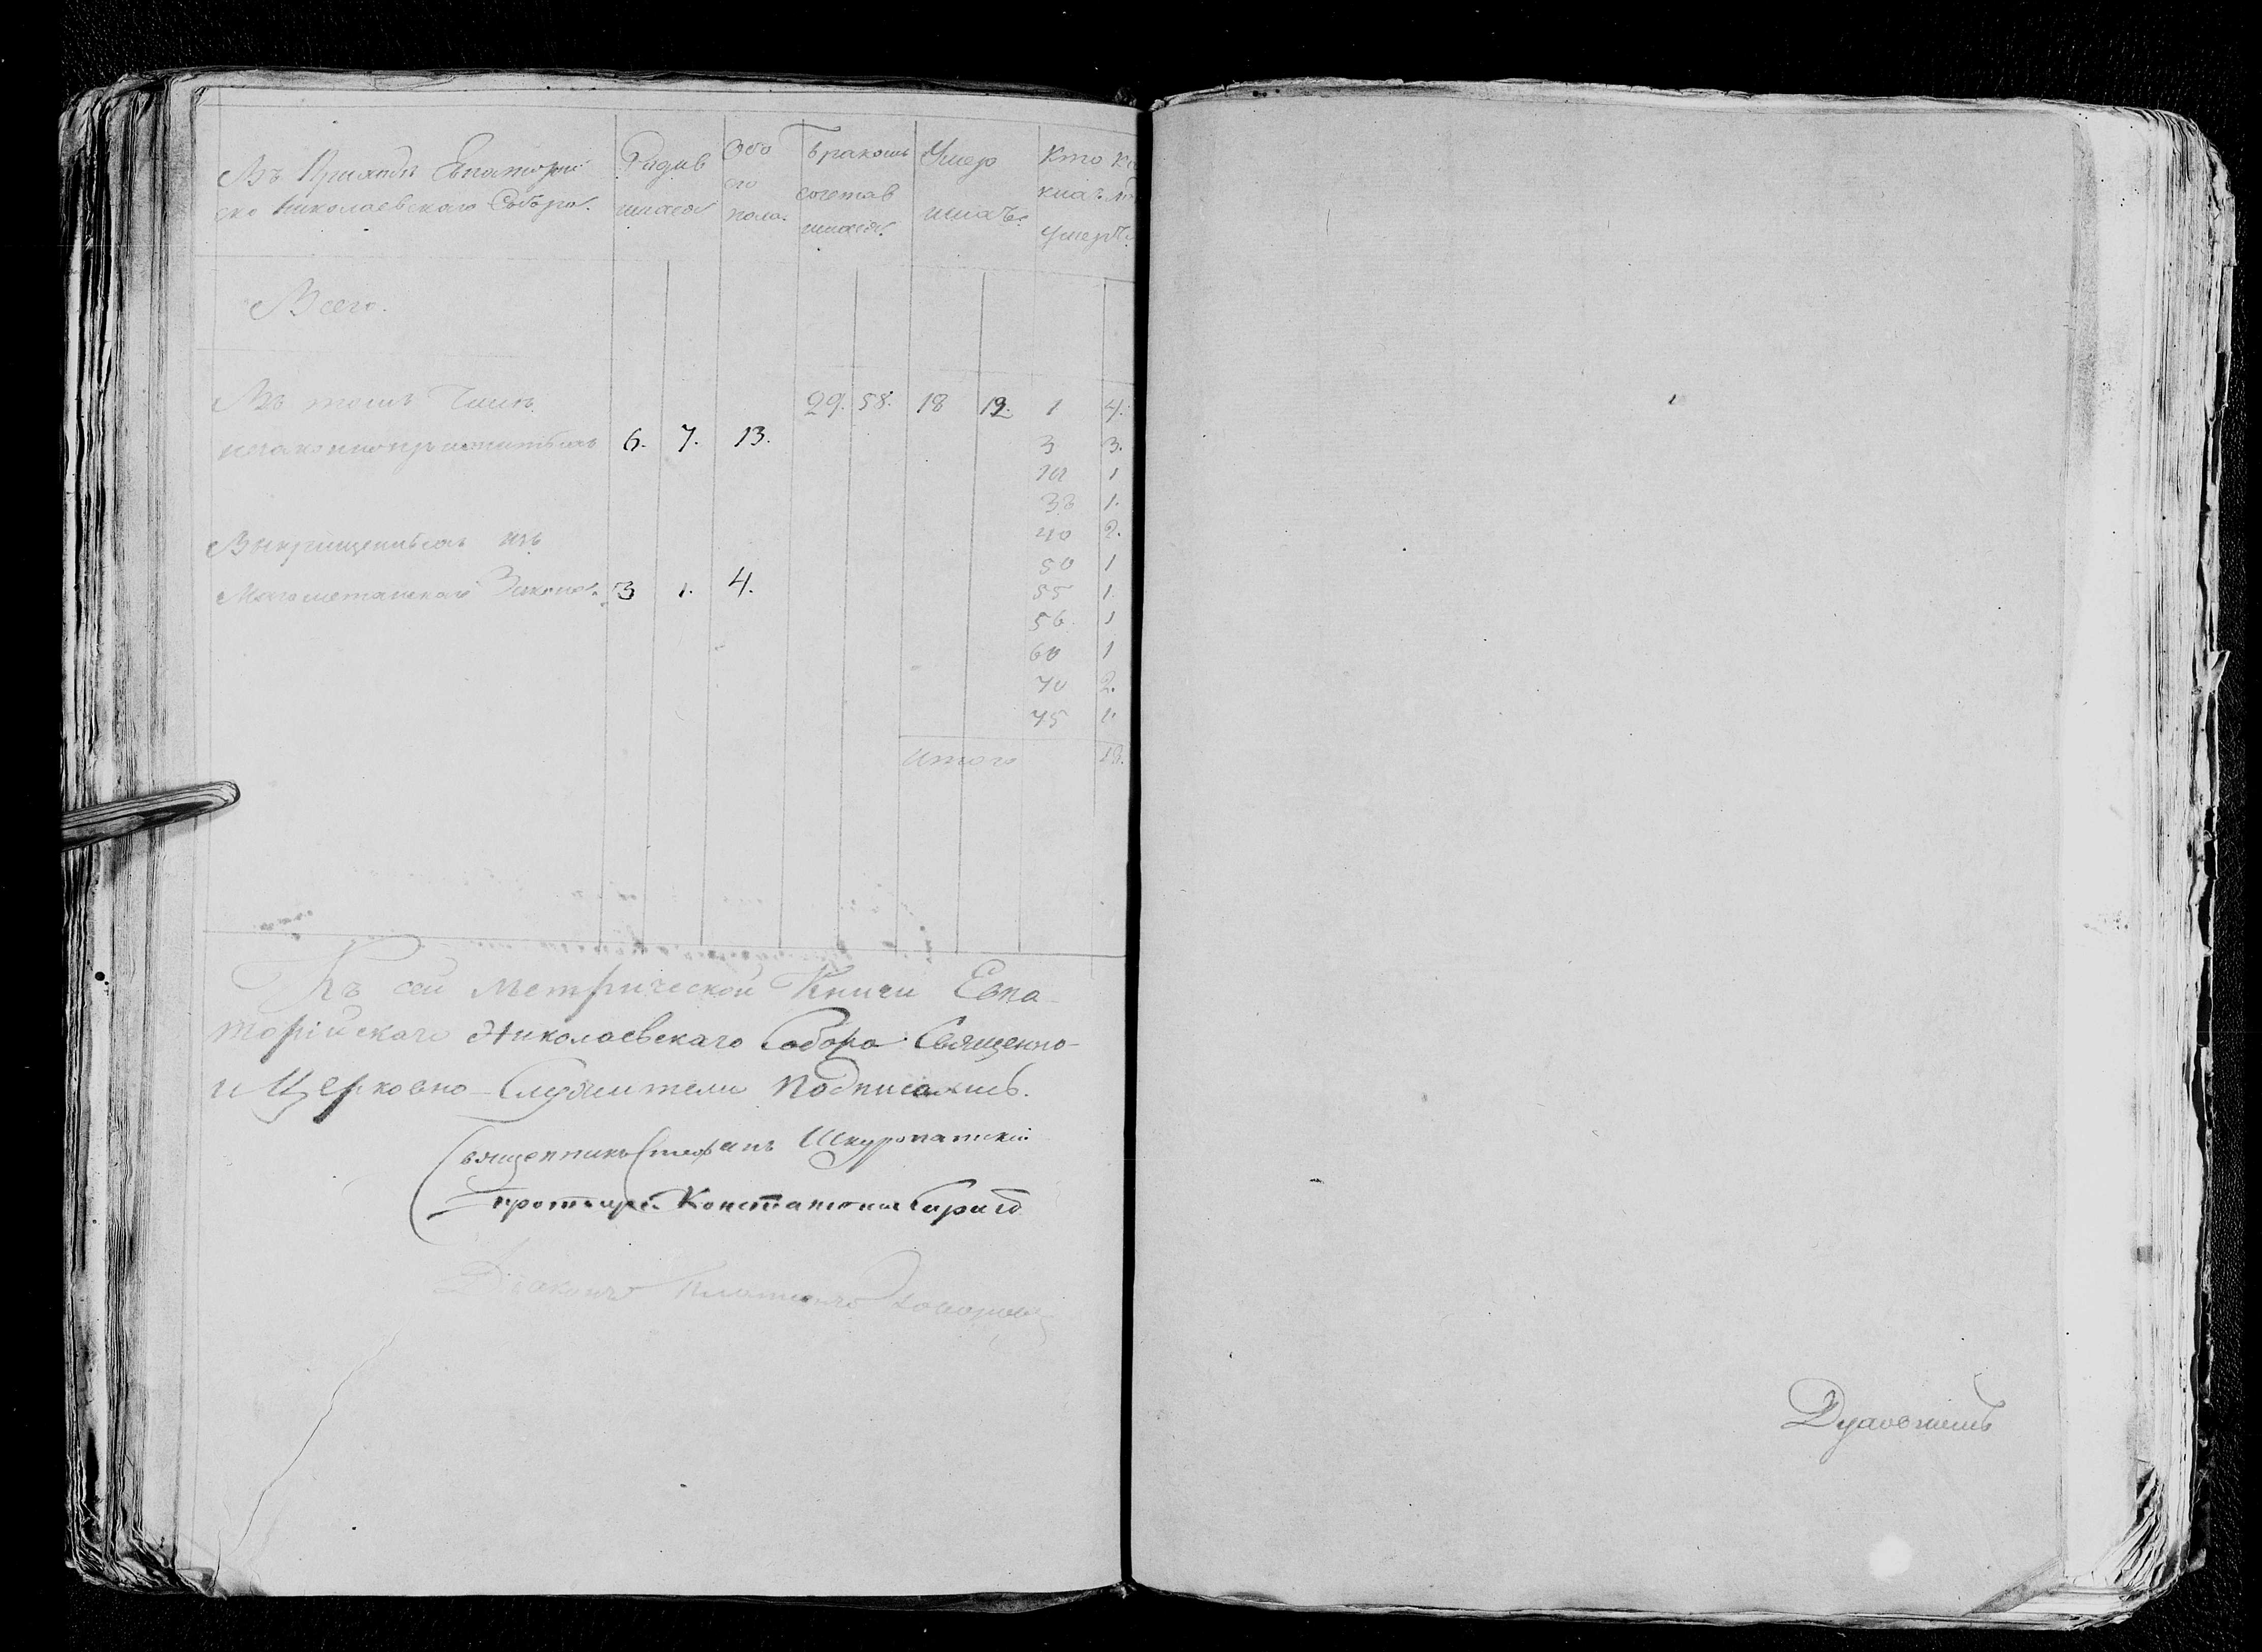 Въ Приходѣ Евпаторій
ско Николаевскаго Собора.
Родив
шихся
Обо
его
пола.
Бракомъ
сочетав
шихся.
Умер
шихъ.
Кто
кихъ
умеръ.
Всего.
Въ томъ Числѣ
29. 58. 18 12. 1 4.
незаконнорожденныхъ 6. 7. 13.
3 3.
1.
40 2.
Выкрещенныхъ изъ
50 1
Магометанскаго Закона. 3 1. 4.
55 1.
56. 1
60 1
70 2.
75
Итого 18.
Къ сей Метрической Книги Евпа-
торійскаго Николаевскаго Собора Священно-
и Церковно-Служители подписались.
Священникъ Стефанъ Шкуропатскій
Протоіерей Константинъ
Діаконъ Платонъ